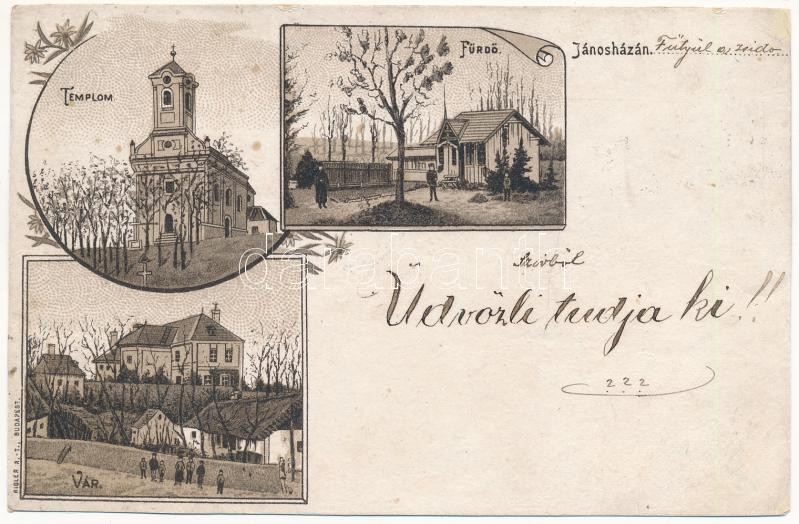 TEMPLOM.
FÜRDŐ.
Jánosházán. Fütyül a zsido
Szivből
Üdvözli tudja ki!!
2 2 2
VÁR.
RIGLER R.-T., BUDAPEST.
darabanth